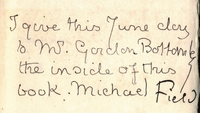 I give this June day
to Mr. Gordon Bottomley
the inside of this
book. Michael Field